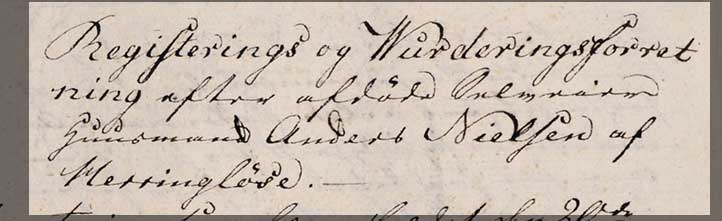 Registerings og Wurderingsforret
ning efter afdöde Selveier
Huusmand Anders Nielsen af
Merringlöse. —